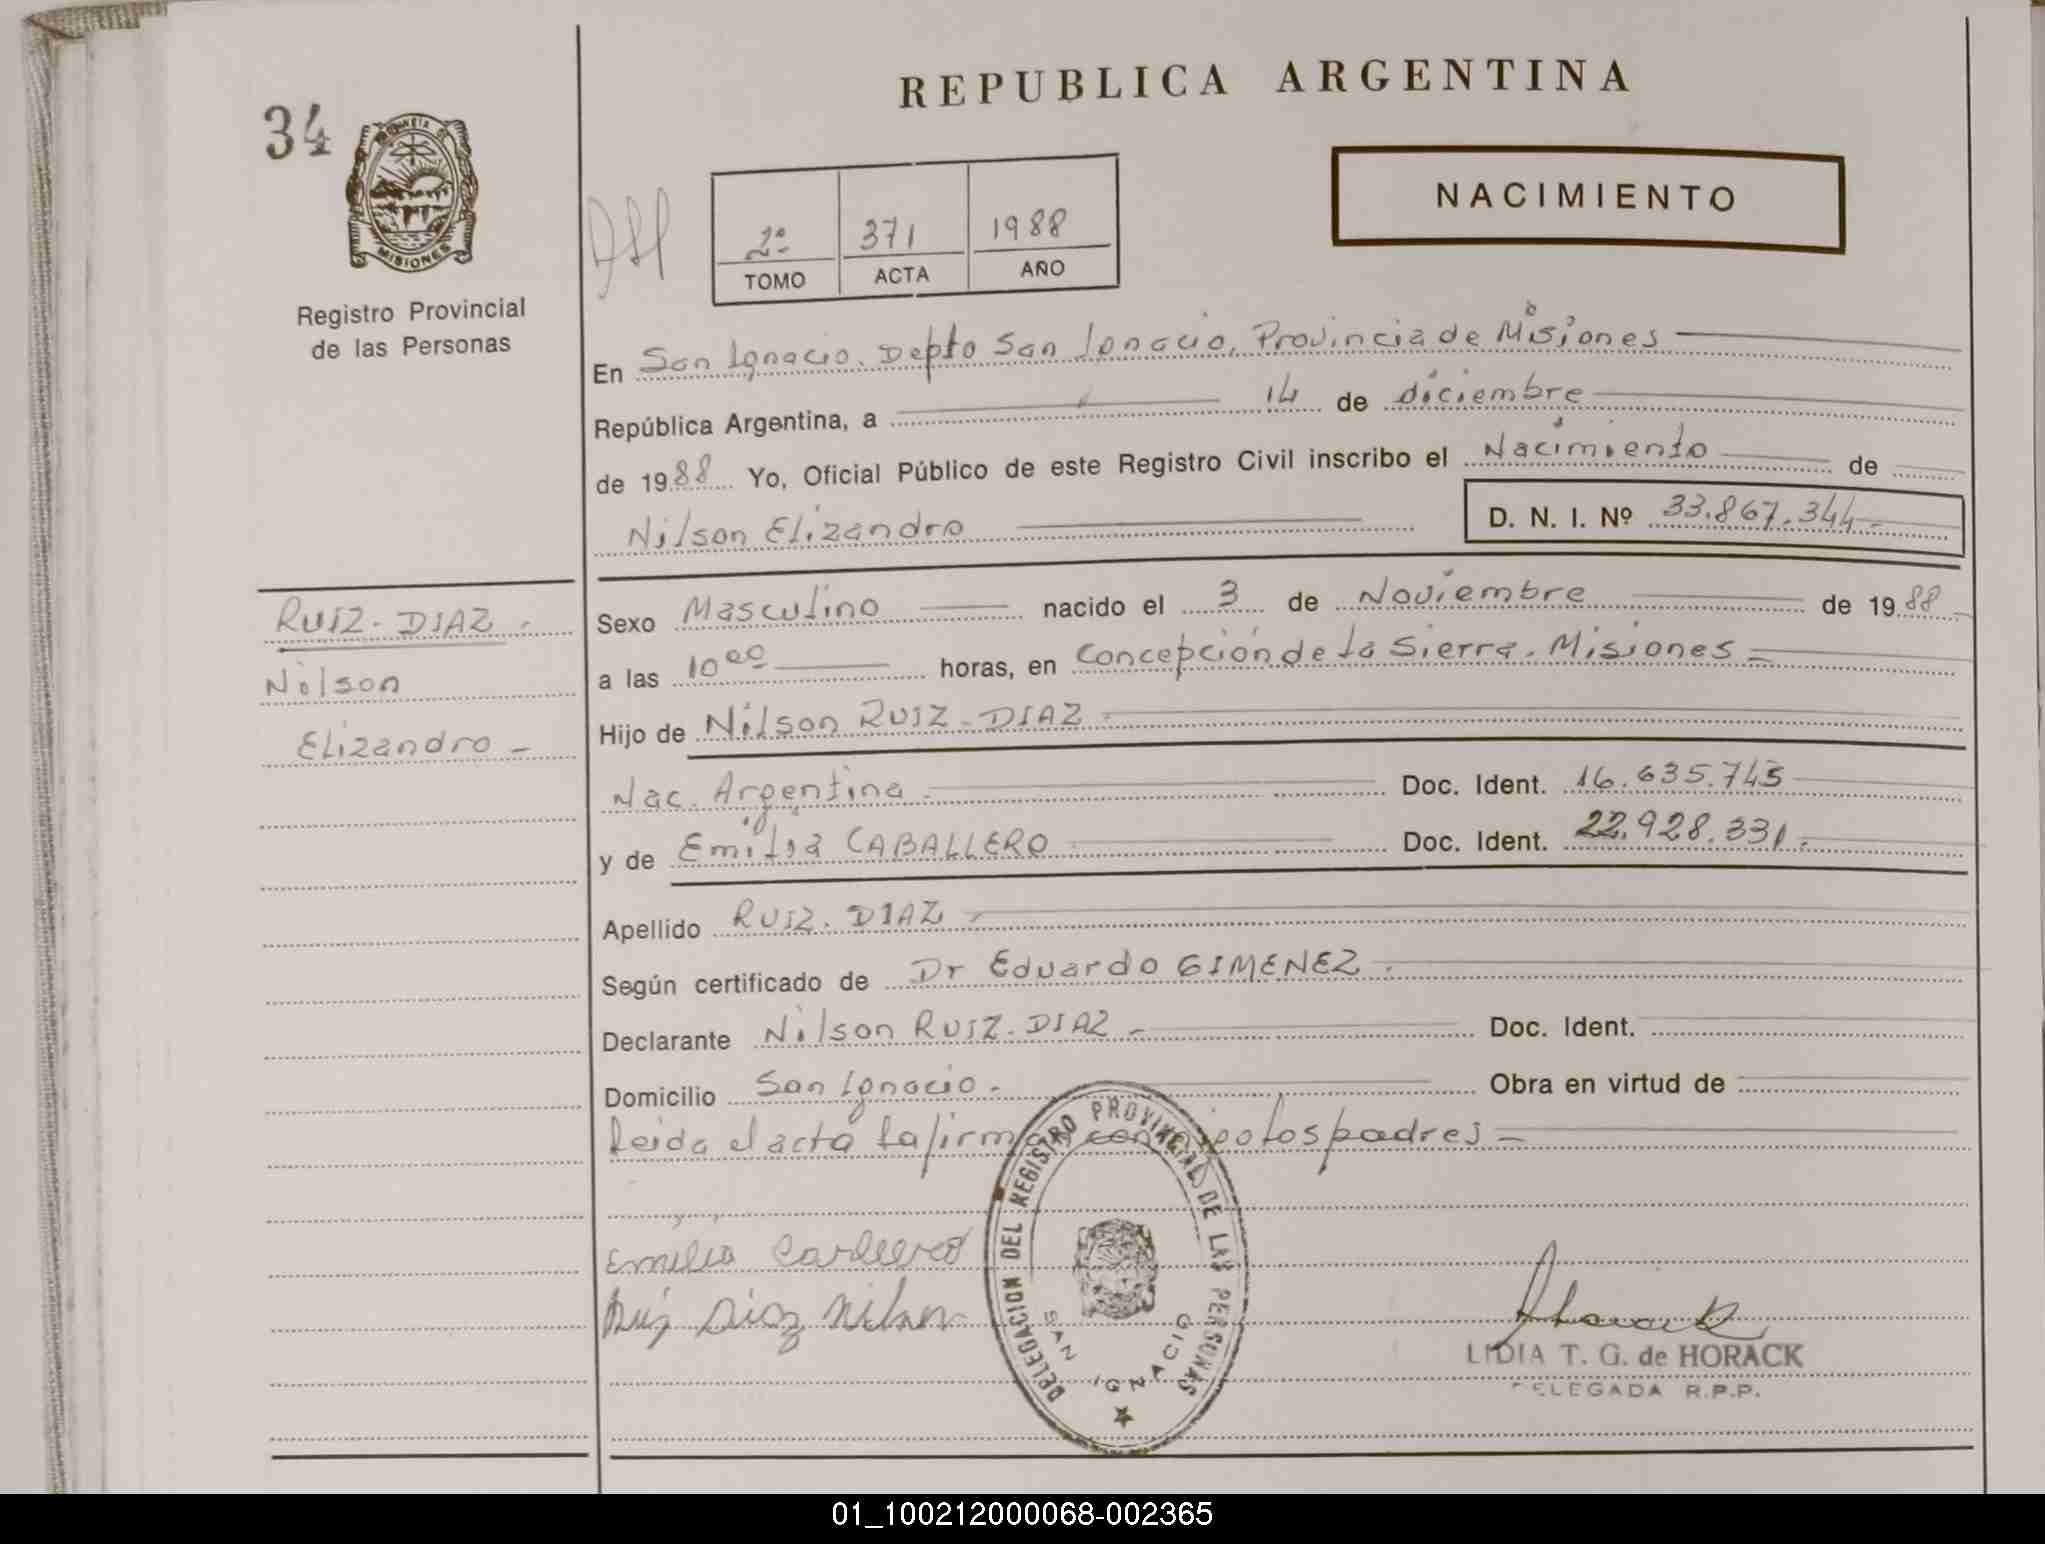 34
PROVINCIA DE
MISIONES
Registro Provincial
de las Personas
REPUBLICA ARGENTINA
NACIMIENTO
2º 371 1988
TOMO ACTA AÑO
En San Ignacio. Depto San Ignacio. Provincia de Misiones
República Argentina, a 14 de diciembre
de 1988 Yo, Oficial Público de este Registro Civil inscribo el Nacimiento de
Nilson Elizandro D. N. I. Nº 33.867.344-
RUIZ-DIAZ.
Nilson
Elizandro-
Sexo Masculino nacido el 3 de Noviembre de 1988
a las 10 00 horas, en Concepción de la Sierra. Misiones-
Hijo de Nilson RUIZ-DIAZ.
Nac. Argentina. Doc. Ident. 16.635.745
y de Emilia CABALLERO Doc. Ident. 22.928.331.
Apellido RUIZ. DIAZ
Según certificado de Dr Eduardo GIMENEZ.
Declarante Nilson RUIZ-DIAZ- Doc. Ident.
Domicilio San Ignacio. Obra en virtud de
Leida el acta la firman conmigo los padres-
Emilia
Ruiz Diaz Nilson
DELEGACION DEL REGISTRO PROVINCIAL DE LAS PERSONAS
SAN IGNACIO
LIDIA T. G. de HORACK
DELEGADA R.P.P.
01_100212000068-002365